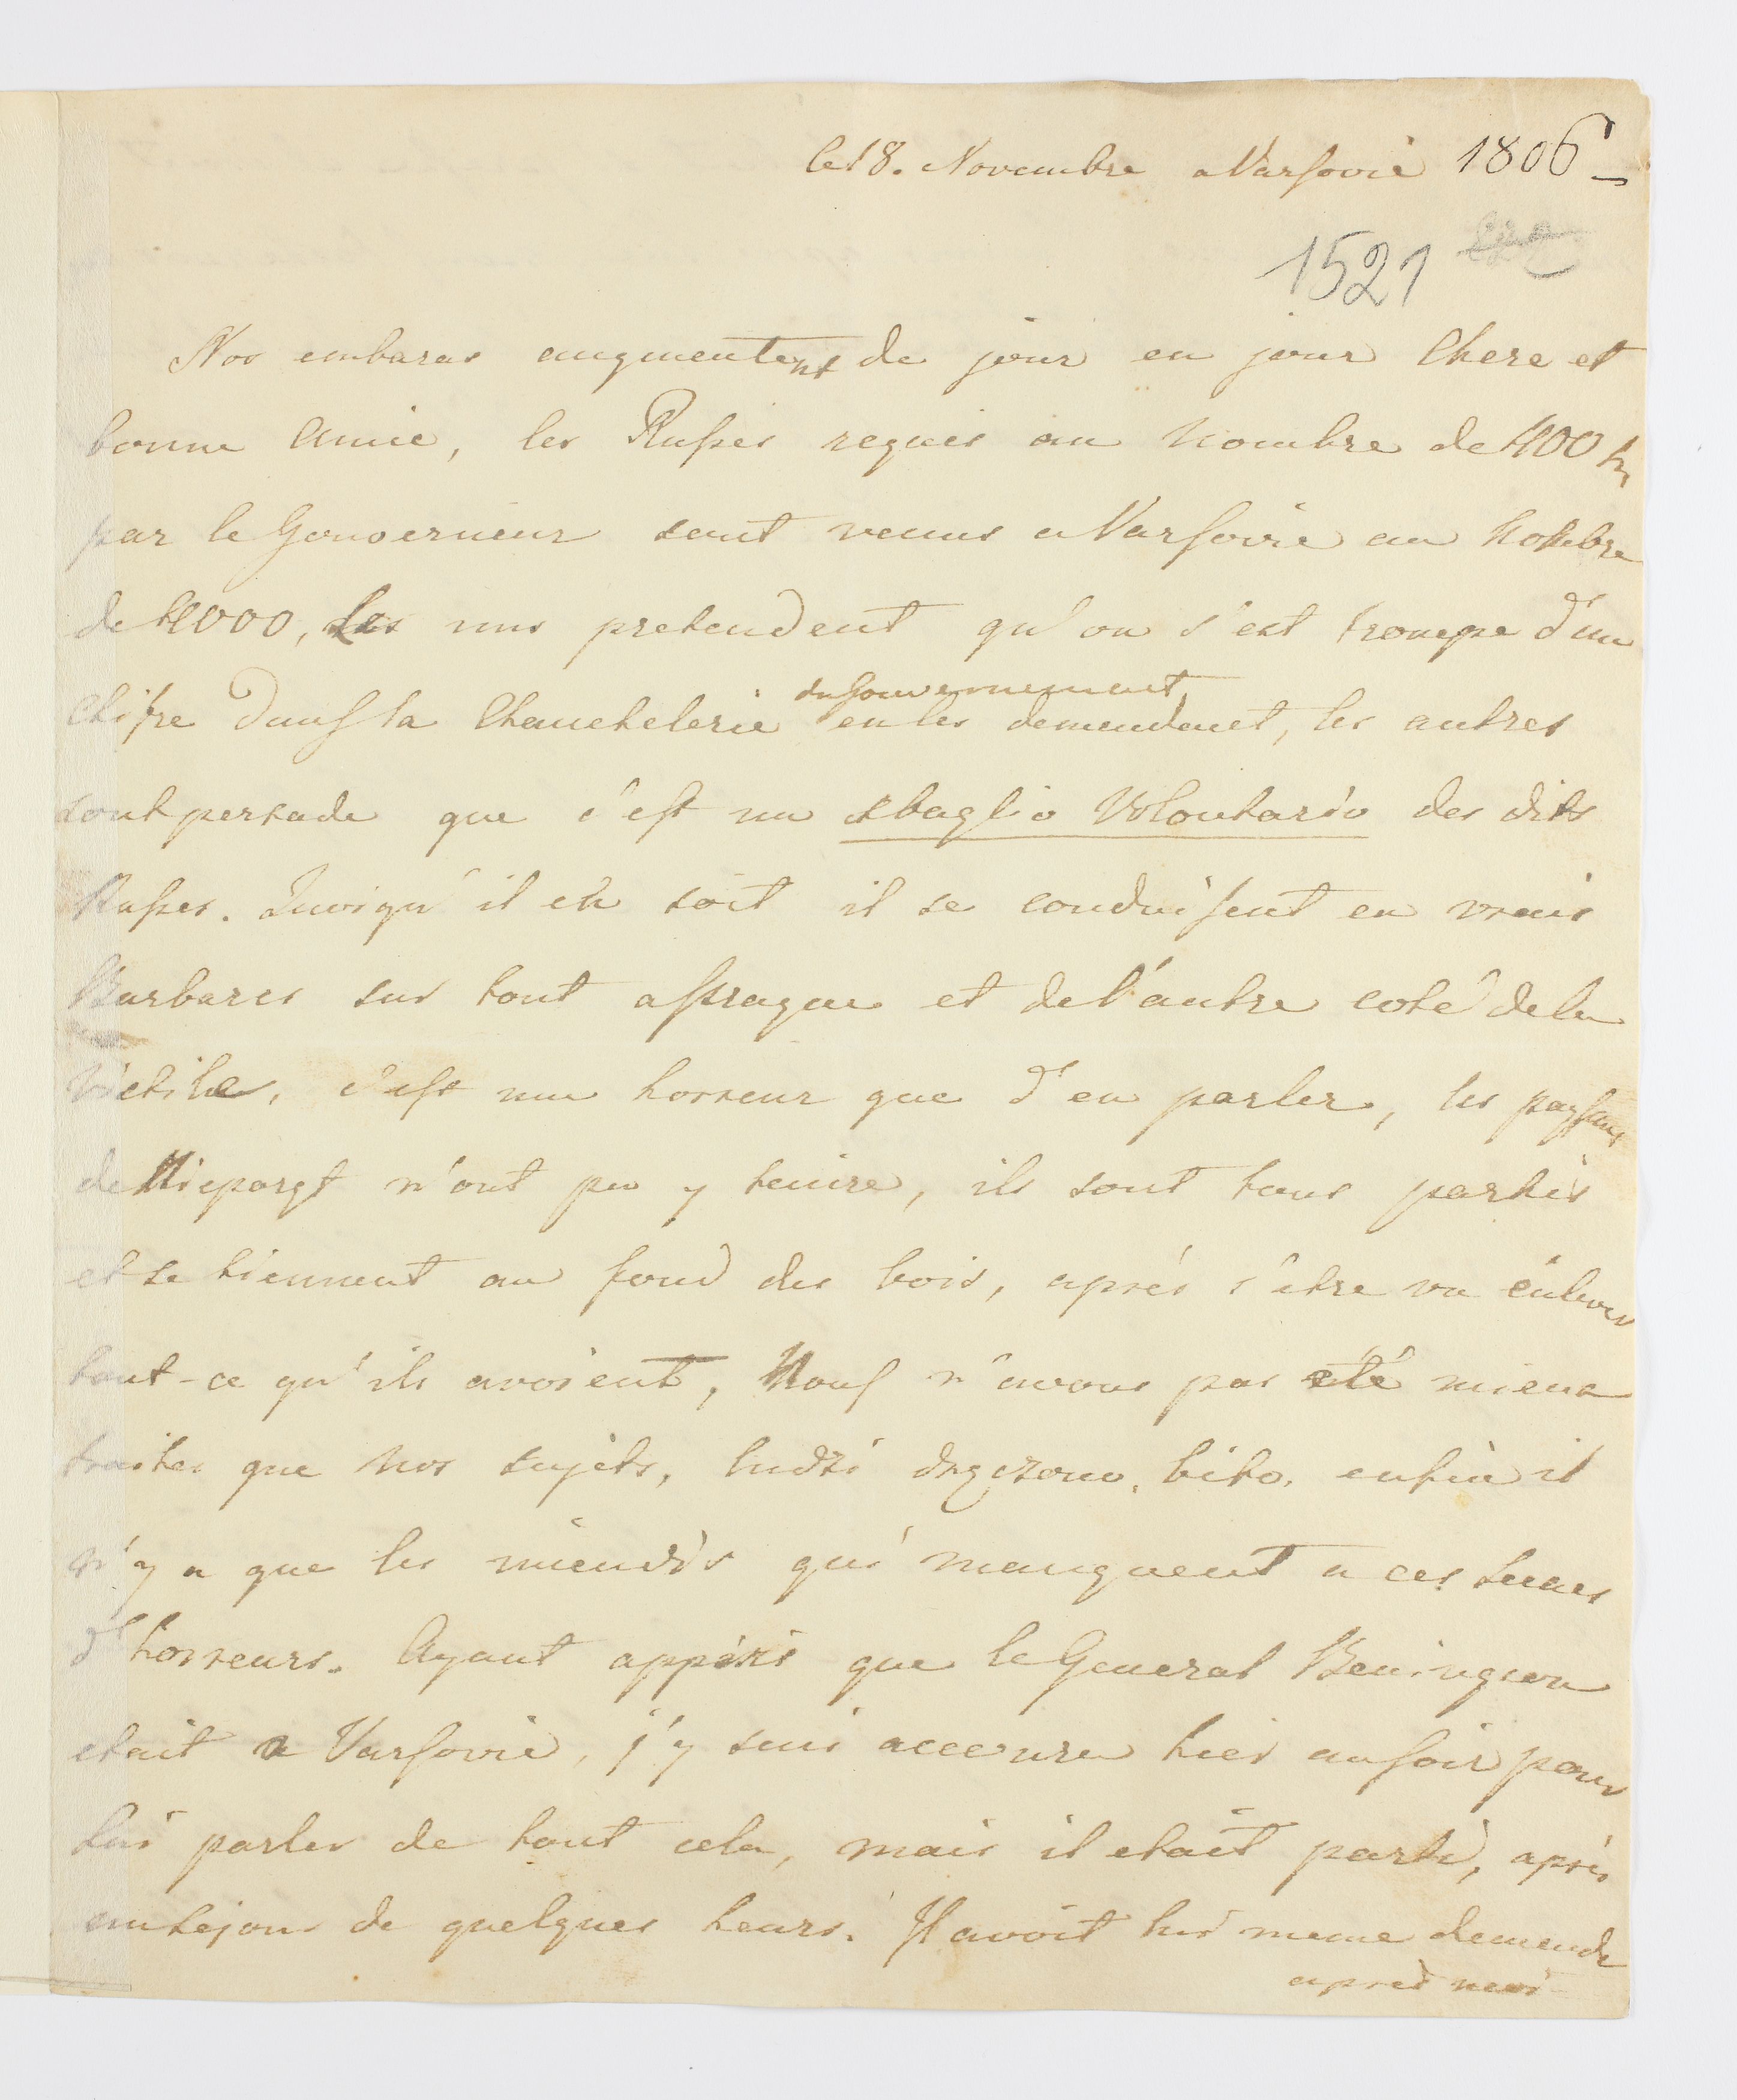 le 18. Novembre a Varsovie 1806
1521
Nos embaras augmentent de jour en jour Chere et
bonne Amie, les Russes requis au nombre de 400 h
par le Gouverneur sont venus a Varsovie au Nombre
de 4000, les uns pretendent qu'on s'est trompe d'un
Chifre dans la Chanchelerie du Gouvernement en les demendent, les autres
sont persade que c'est un sbaglio Volontario des dits
Russes. Quoiqu'il en soit il se conduisent en vrais
Barbares sur tout a Prague et de l'autre coté de la
Vistile, c'est une horreur que d'en parler, les paysans
de n'ont pu y tenire, ils sont tous partis
et se tiennent au fond des bois, aprés s'etre vu enlever
tout-ce qu'ils avoient, Nous n'avons pas eté mieux
traites que nos sujets, ludzi dręczono, bito, enfin il
n'y a que les qui manquent a ces scenes
d'horreurs. Ayant appris que le General Beningsen
etait a Varsovie, j'y suis accouru hier au soir pour
lui parler de tout cela, mais il etait parti, aprés
un sejour de quelques heurs. Il avoit lui meme demende
apres moi